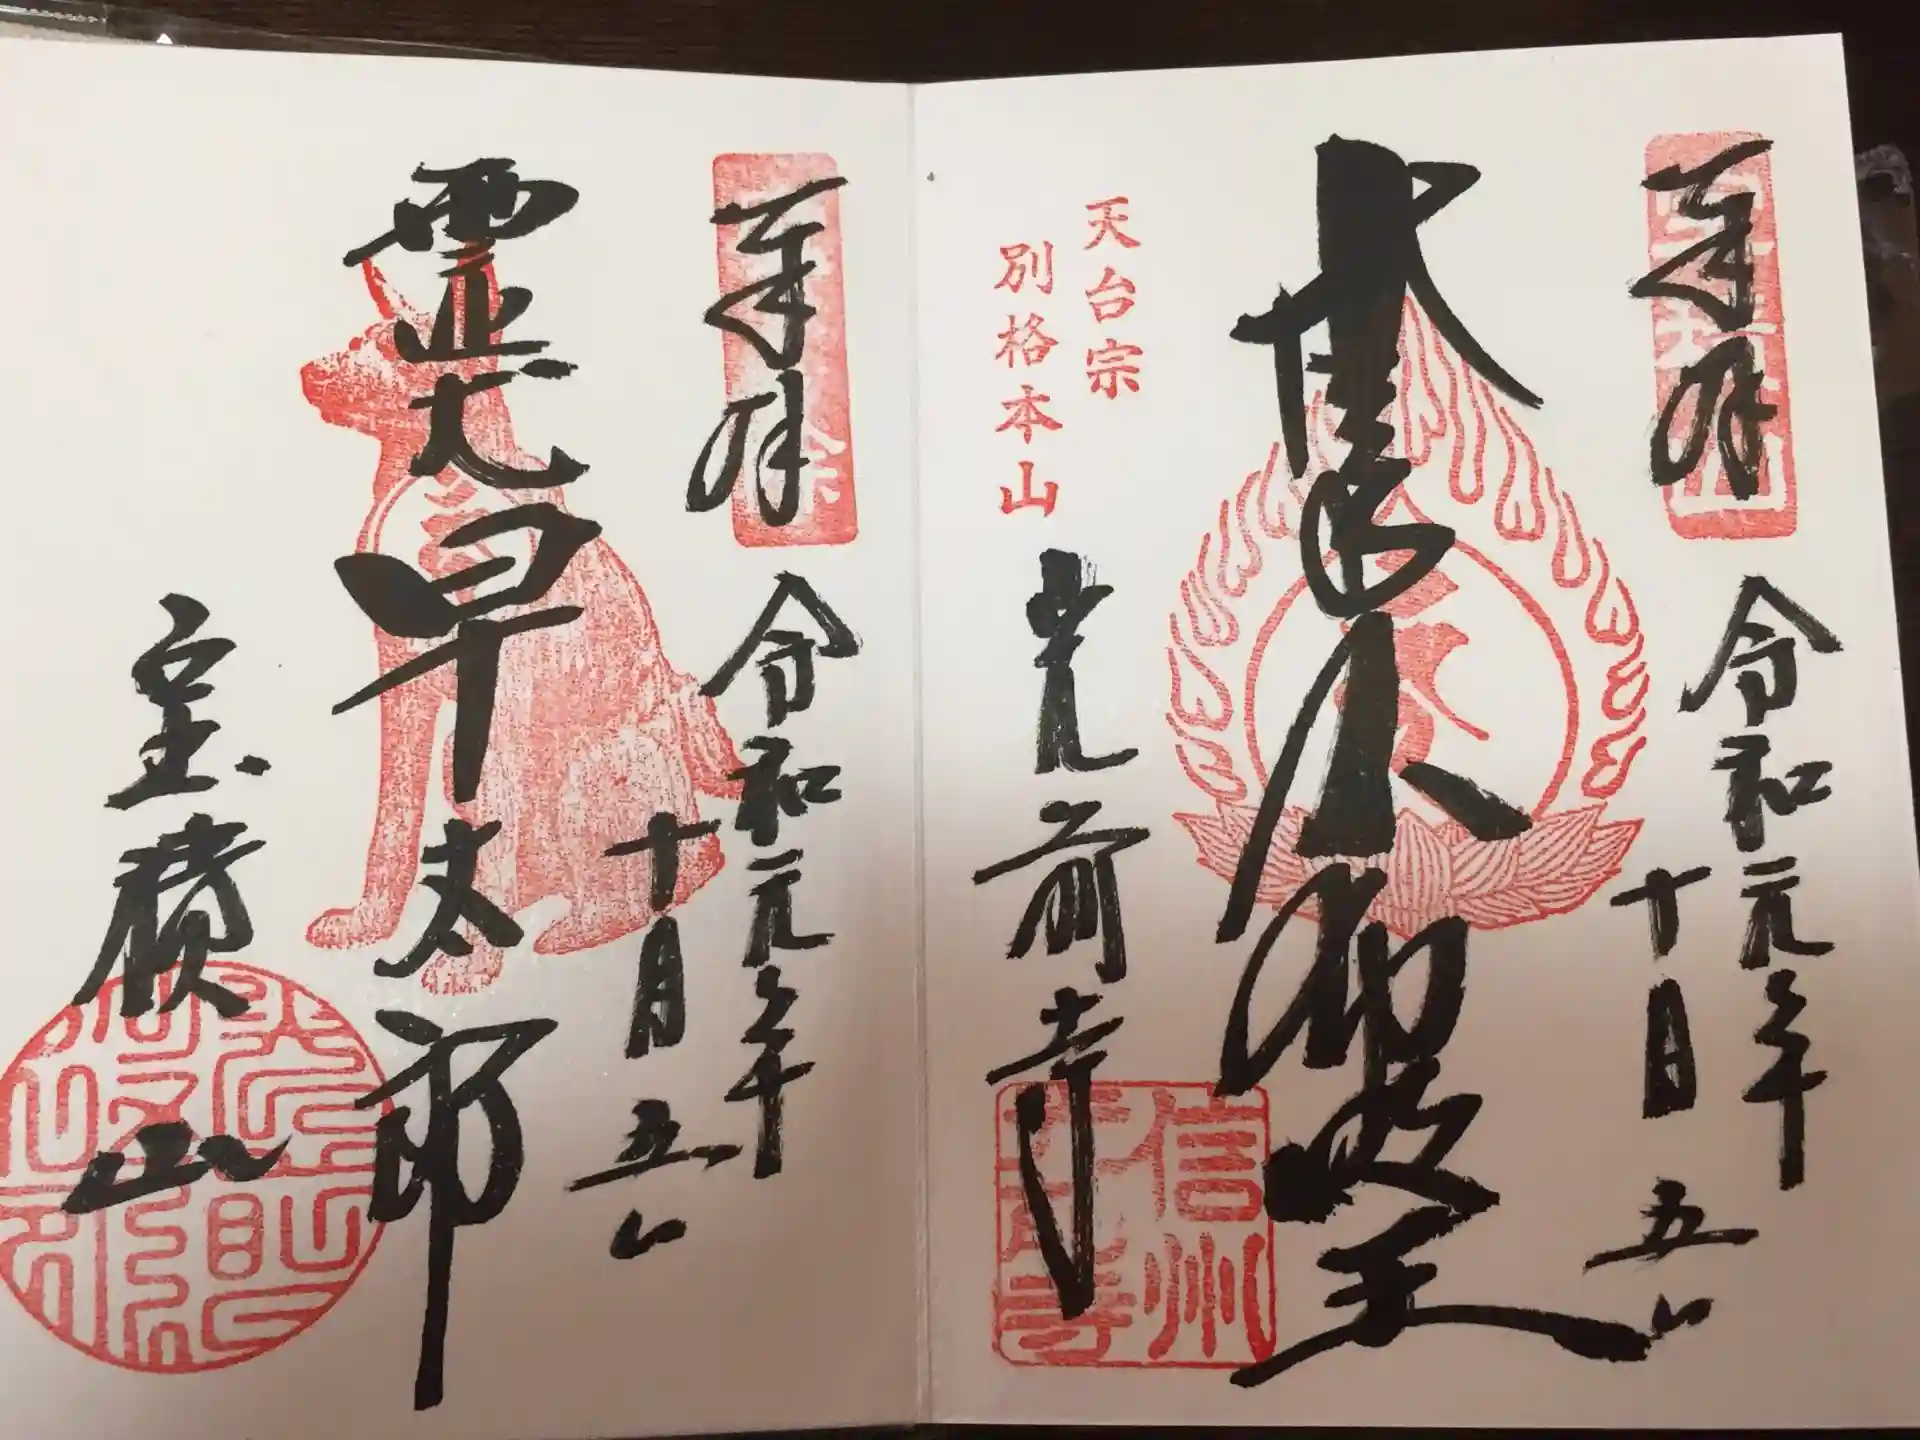 奉拝
令和元年
十月五日
大聖不動明王
天台宗
別格本山
光前寺
信州
光前寺
奉拝
令和元年
十月五日
霊犬早太郎
宝積山